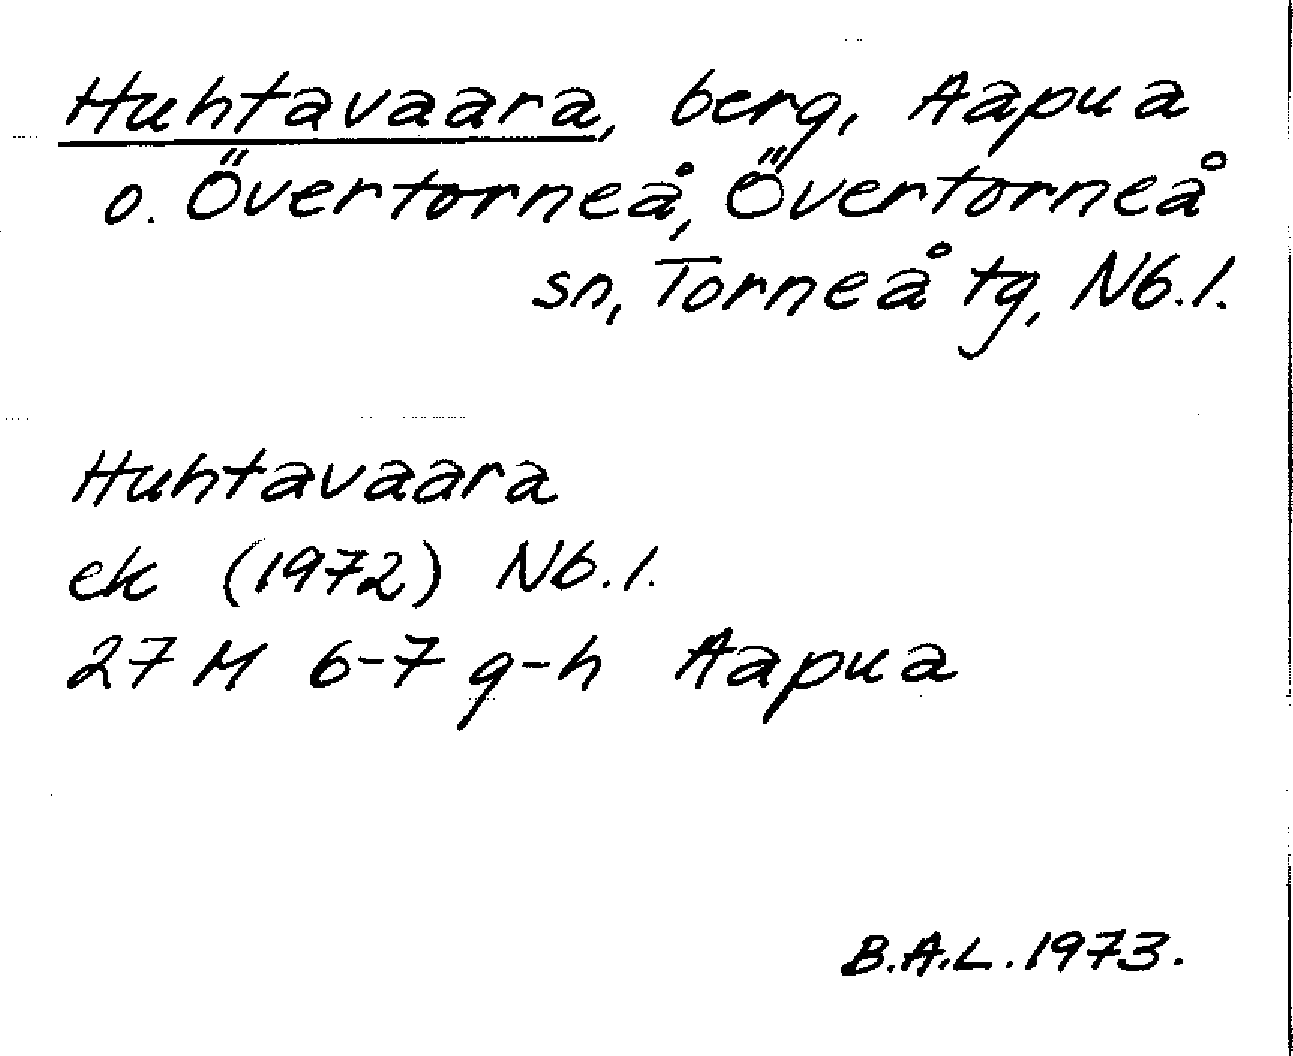 Huhtavaara, berg, Aapua
o. Övertorneå, Övertorneå
sn, Torneå tg, Nb. l.
Huhtavaara
ek (1972) Nb. l.
27 M 6-7 g-h Aapua
B.A.L. 1973.